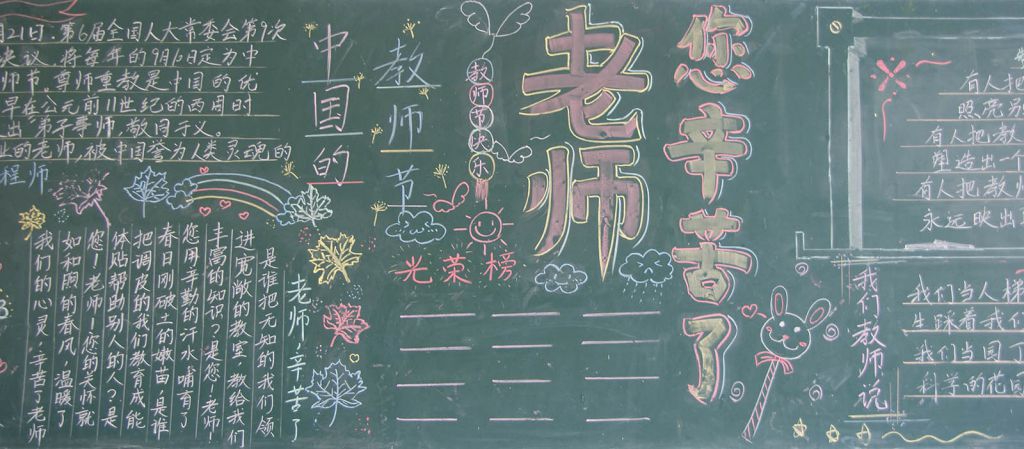 月21日.第6届全国人大常委会第9次
决议.将每年的9月10日定为中
师节.尊师重教是中国的优
早在公元前11世纪的西周时
出"弟子事师,敬同于父。
业的老师,被中国誉为人类灵魂的
程师
中国的
教师节
教师节快乐
老师
您辛苦了
光荣榜
老师辛苦了
是谁把无知的我们领
进宽敞的教室,教给我们
丰富的知识?是您!老师!
您用辛勤的汗水哺育了
春日刚破土的嫩苗.是谁
把调皮的我们教育成能
体贴帮助别人的人?是
您!老师!您的关怀就
如和煦的春风温暖了
我们的心灵.辛苦了老师
有人把
照亮别
有人把教
塑造出一个
有人把教师
永远映出
我们教师说
我们当人梯
生踩着我们
我们当园丁
科学的花园